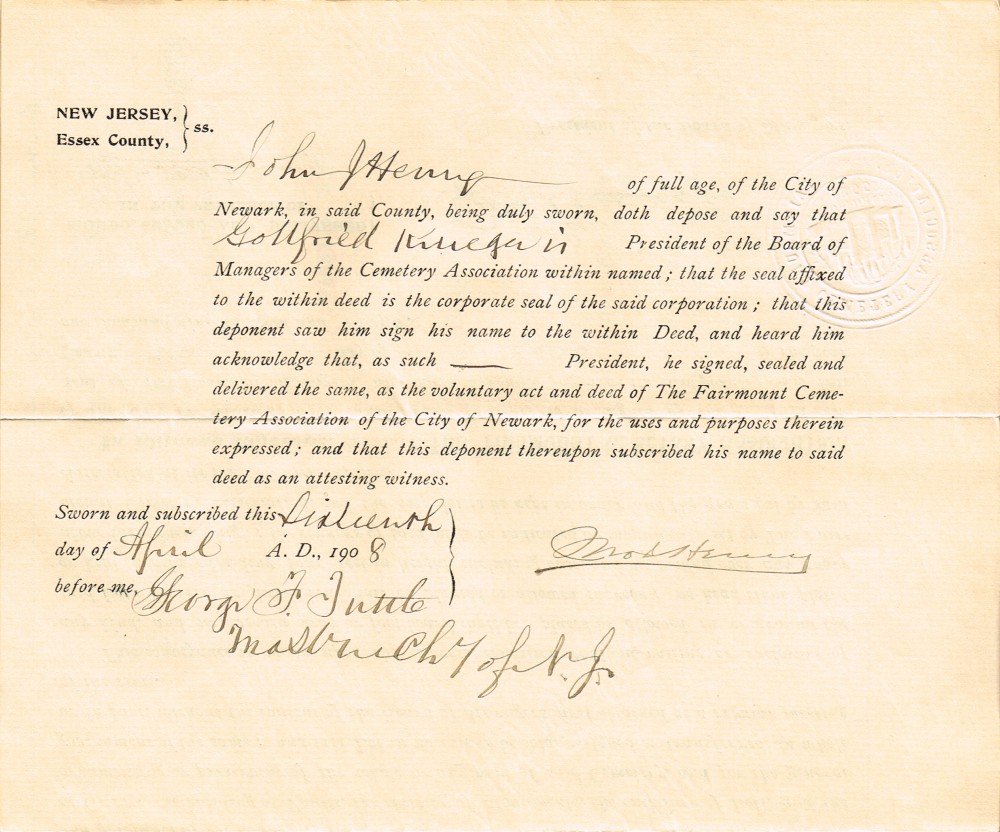 NEW JERSEY,
Essex County, } ss.
John J Henry of full age, of the City of
Newark, in said County, being duly sworn, doth depose and say that
Gottfried Krueger is President of the Board of
Managers of the Cemetery Association within named; that the seal affixed
to the within deed is the corporate seal of the said corporation; that this
deponent saw him sign his name to the within Deed, and heard him
acknowledge that, as such —— President, he signed, sealed and
delivered the same, as the voluntary act and deed of The Fairmount Ceme-
tery Association of the City of Newark, for the uses and purposes therein
expressed; and that this deponent thereupon subscribed his name to said
deed as an attesting witness.
Sworn and subscribed this Sixteenth
day of April A. D., 1908
before me, Henry
George F. Tuttle
Master in Chy of N. J.